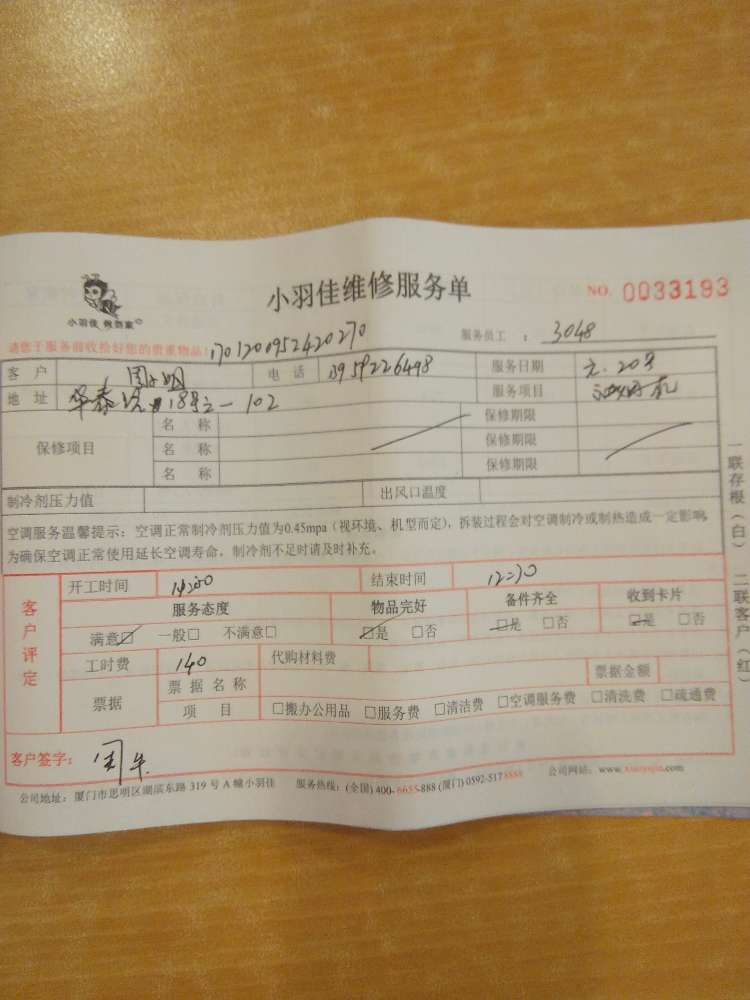 小羽佳 做到家
小羽佳维修服务单
NO. 0033193
请您于服务前收拾好您的贵重物品!
1701200952420270
服务员工 : 3048
客 户 电 话 服务日期 元.20号
地 址 18号之一102 服务项目
保修项目 名 称 保修期限
名 称 保修期限
名 称 保修期限
制冷剂压力值 出风口温度
空调服务温馨提示:空调正常制冷剂压力值为0.45mpa(视环境、机型而定),拆装过程会对空调制冷或制热造成一定影响,
为确保空调正常使用延长空调寿命,制冷剂不足时请及时补充。
客户评定
开工时间 结束时间
服务态度 物品完好 备件齐全 收到卡片
满意☑ 一般□ 不满意□ ☑是 □否 ☑是 □否 ☑是 □否
工时费 140 代购材料费
票据 票据名称 票据金额
项 目 □搬办公用品 □服务费 □清洁费 □空调服务费 □清洗费 □疏通费
客户签字: 周生
公司地址:厦门市思明区湖滨东路 319 号 A 幢小羽佳 服务热线:(全国)400-6655-888 (厦门)0592-5178888 公司网站:www.xiaoyujia.com
一联存根(白) 二联客户(红)